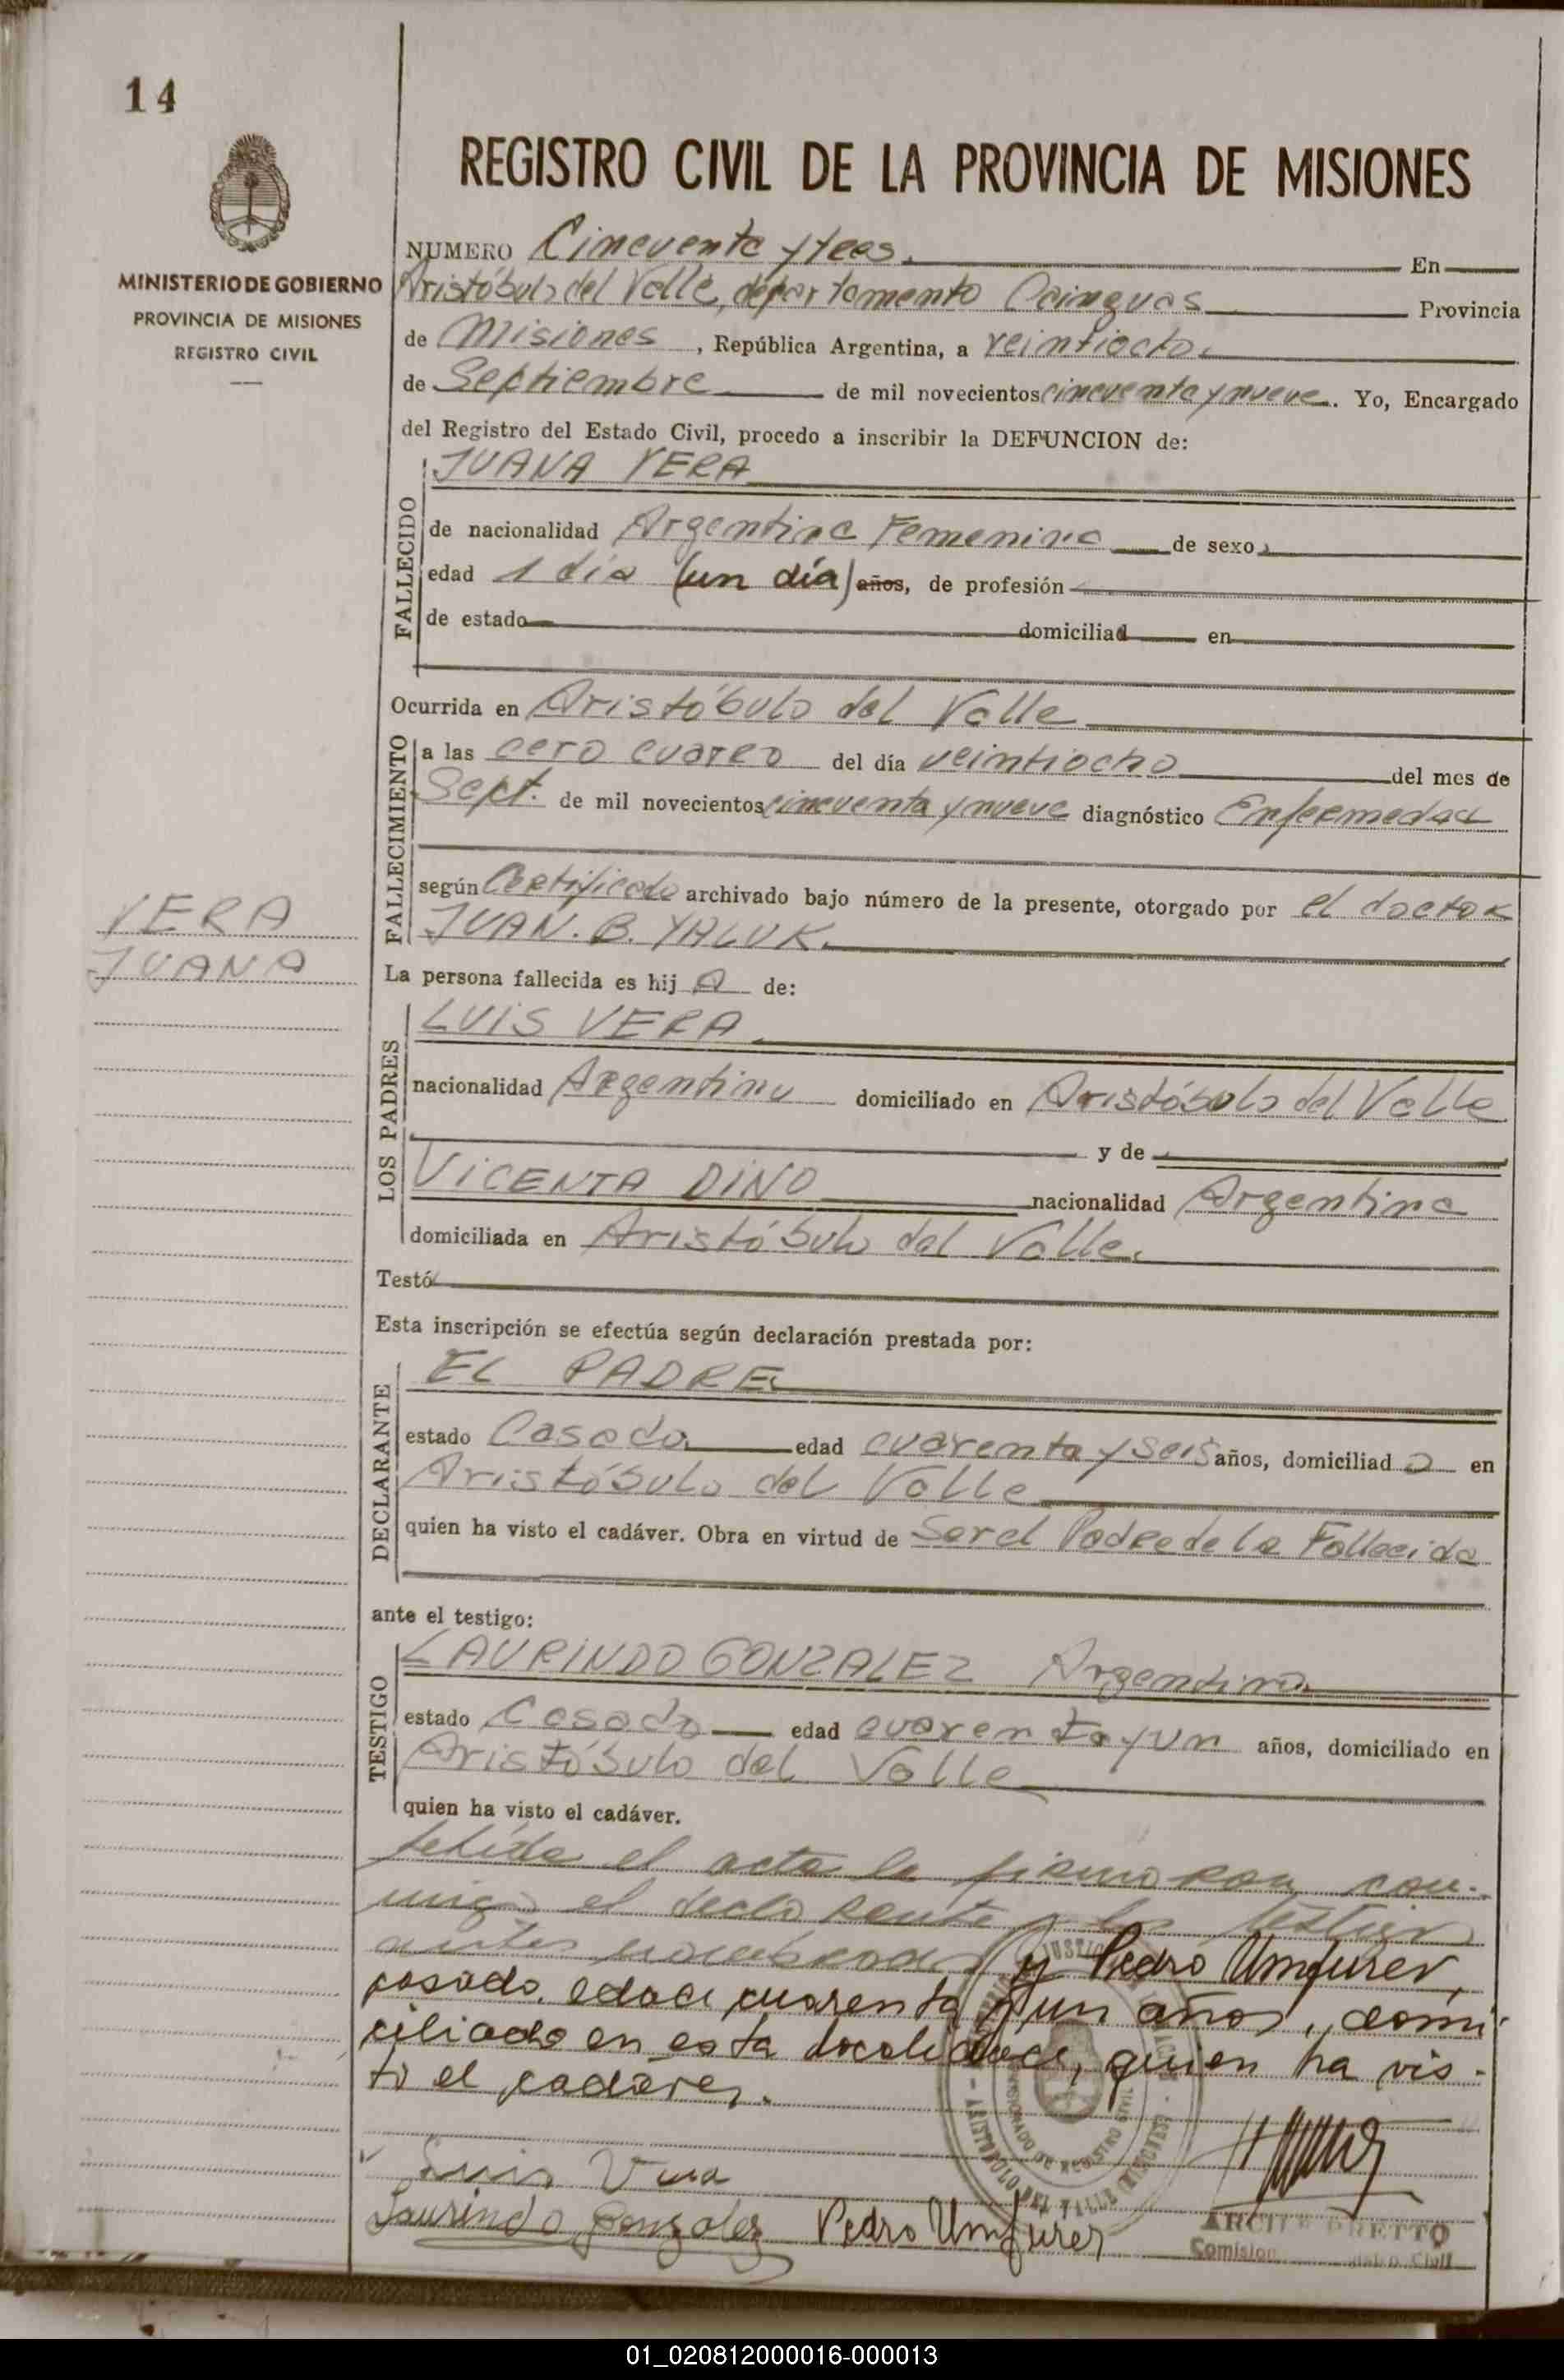 14
REGISTRO CIVIL DE LA PROVINCIA DE MISIONES
MINISTERIO DE GOBIERNO
PROVINCIA DE MISIONES
REGISTRO CIVIL
NUMERO Cincuenta y tres. En
Aristóbulo del Valle, departamento Cainguas Provincia
de Misiones, República Argentina, a veintiocho.
de Septiembre de mil novecientos cincuenta y nueve. Yo, Encargado
del Registro del Estado Civil, procedo a inscribir la DEFUNCION de:
FALLECIDO
JUANA VERA
de nacionalidad Argentina Femenina de sexo
edad 1 día (un día) años, de profesión
de estado domiciliad en
Ocurrida en Aristóbulo del Valle
FALLECIMIENTO
a las cero cuatro del día veintiocho del mes de
Sept. de mil novecientos cincuenta y nueve diagnóstico Enfermedad
según Certificado archivado bajo número de la presente, otorgado por el doctor
JUAN. B. YALUK.
VERA
JUANA
La persona fallecida es hij a de:
LOS PADRES
LUIS VERA
nacionalidad Argentina domiciliado en Aristóbulo del Valle
y de
VICENTA DINO nacionalidad Argentina
domiciliada en Aristóbulo del Valle.
Testó
Esta inscripción se efectúa según declaración prestada por:
DECLARANTE
EL PADRE
estado Casado edad cuarenta y seis años, domiciliad o en
Aristóbulo del Valle
quien ha visto el cadáver. Obra en virtud de Ser el Padre de la Fallecida
ante el testigo:
TESTIGO
LAURINDO GONZALEZ Argentino
estado Casado edad cuarenta y un años, domiciliado en
Aristóbulo del Valle
quien ha visto el cadáver.
el acta la firmaron con-
migo el declarante y los testigos
antes nombrados y Pedro Umfurer,
casado, edad cuarenta y un años, domi-
ciliado en esta localidad, quien ha vis-
to el cadáver.
Luis Vera
Laurindo Gonzalez Pedro Umfurer
01_020812000016-000013